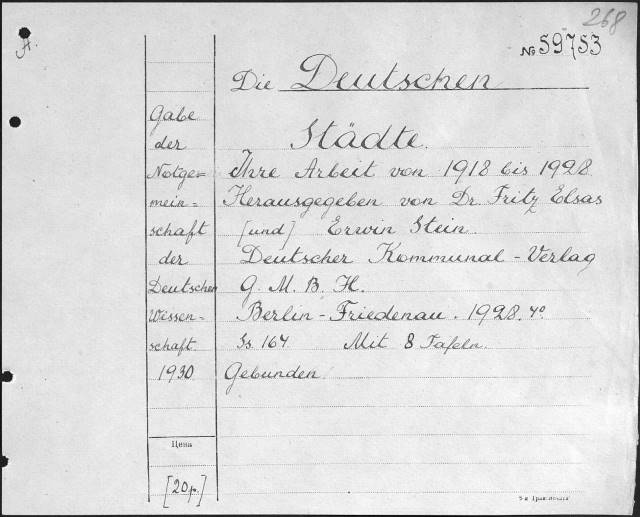 268
№ 59753
A.
Die Deutschen
Städte.
Ihre Arbeit von 1918 bis 1928
Herausgegeben von Dr. Fritz Elsas
[und] Erwin Stein.
Deutscher Kommunal-Verlag
G. M. B. H.
Berlin-Friedenau. 1928. 4°
Ss. 164 Mit 8 Tafeln.
Gebunden
Gabe
der
Notge=
mein=
schaft
der
Deutschen
Wissen=
schaft
1930
Цена
[20 р.]